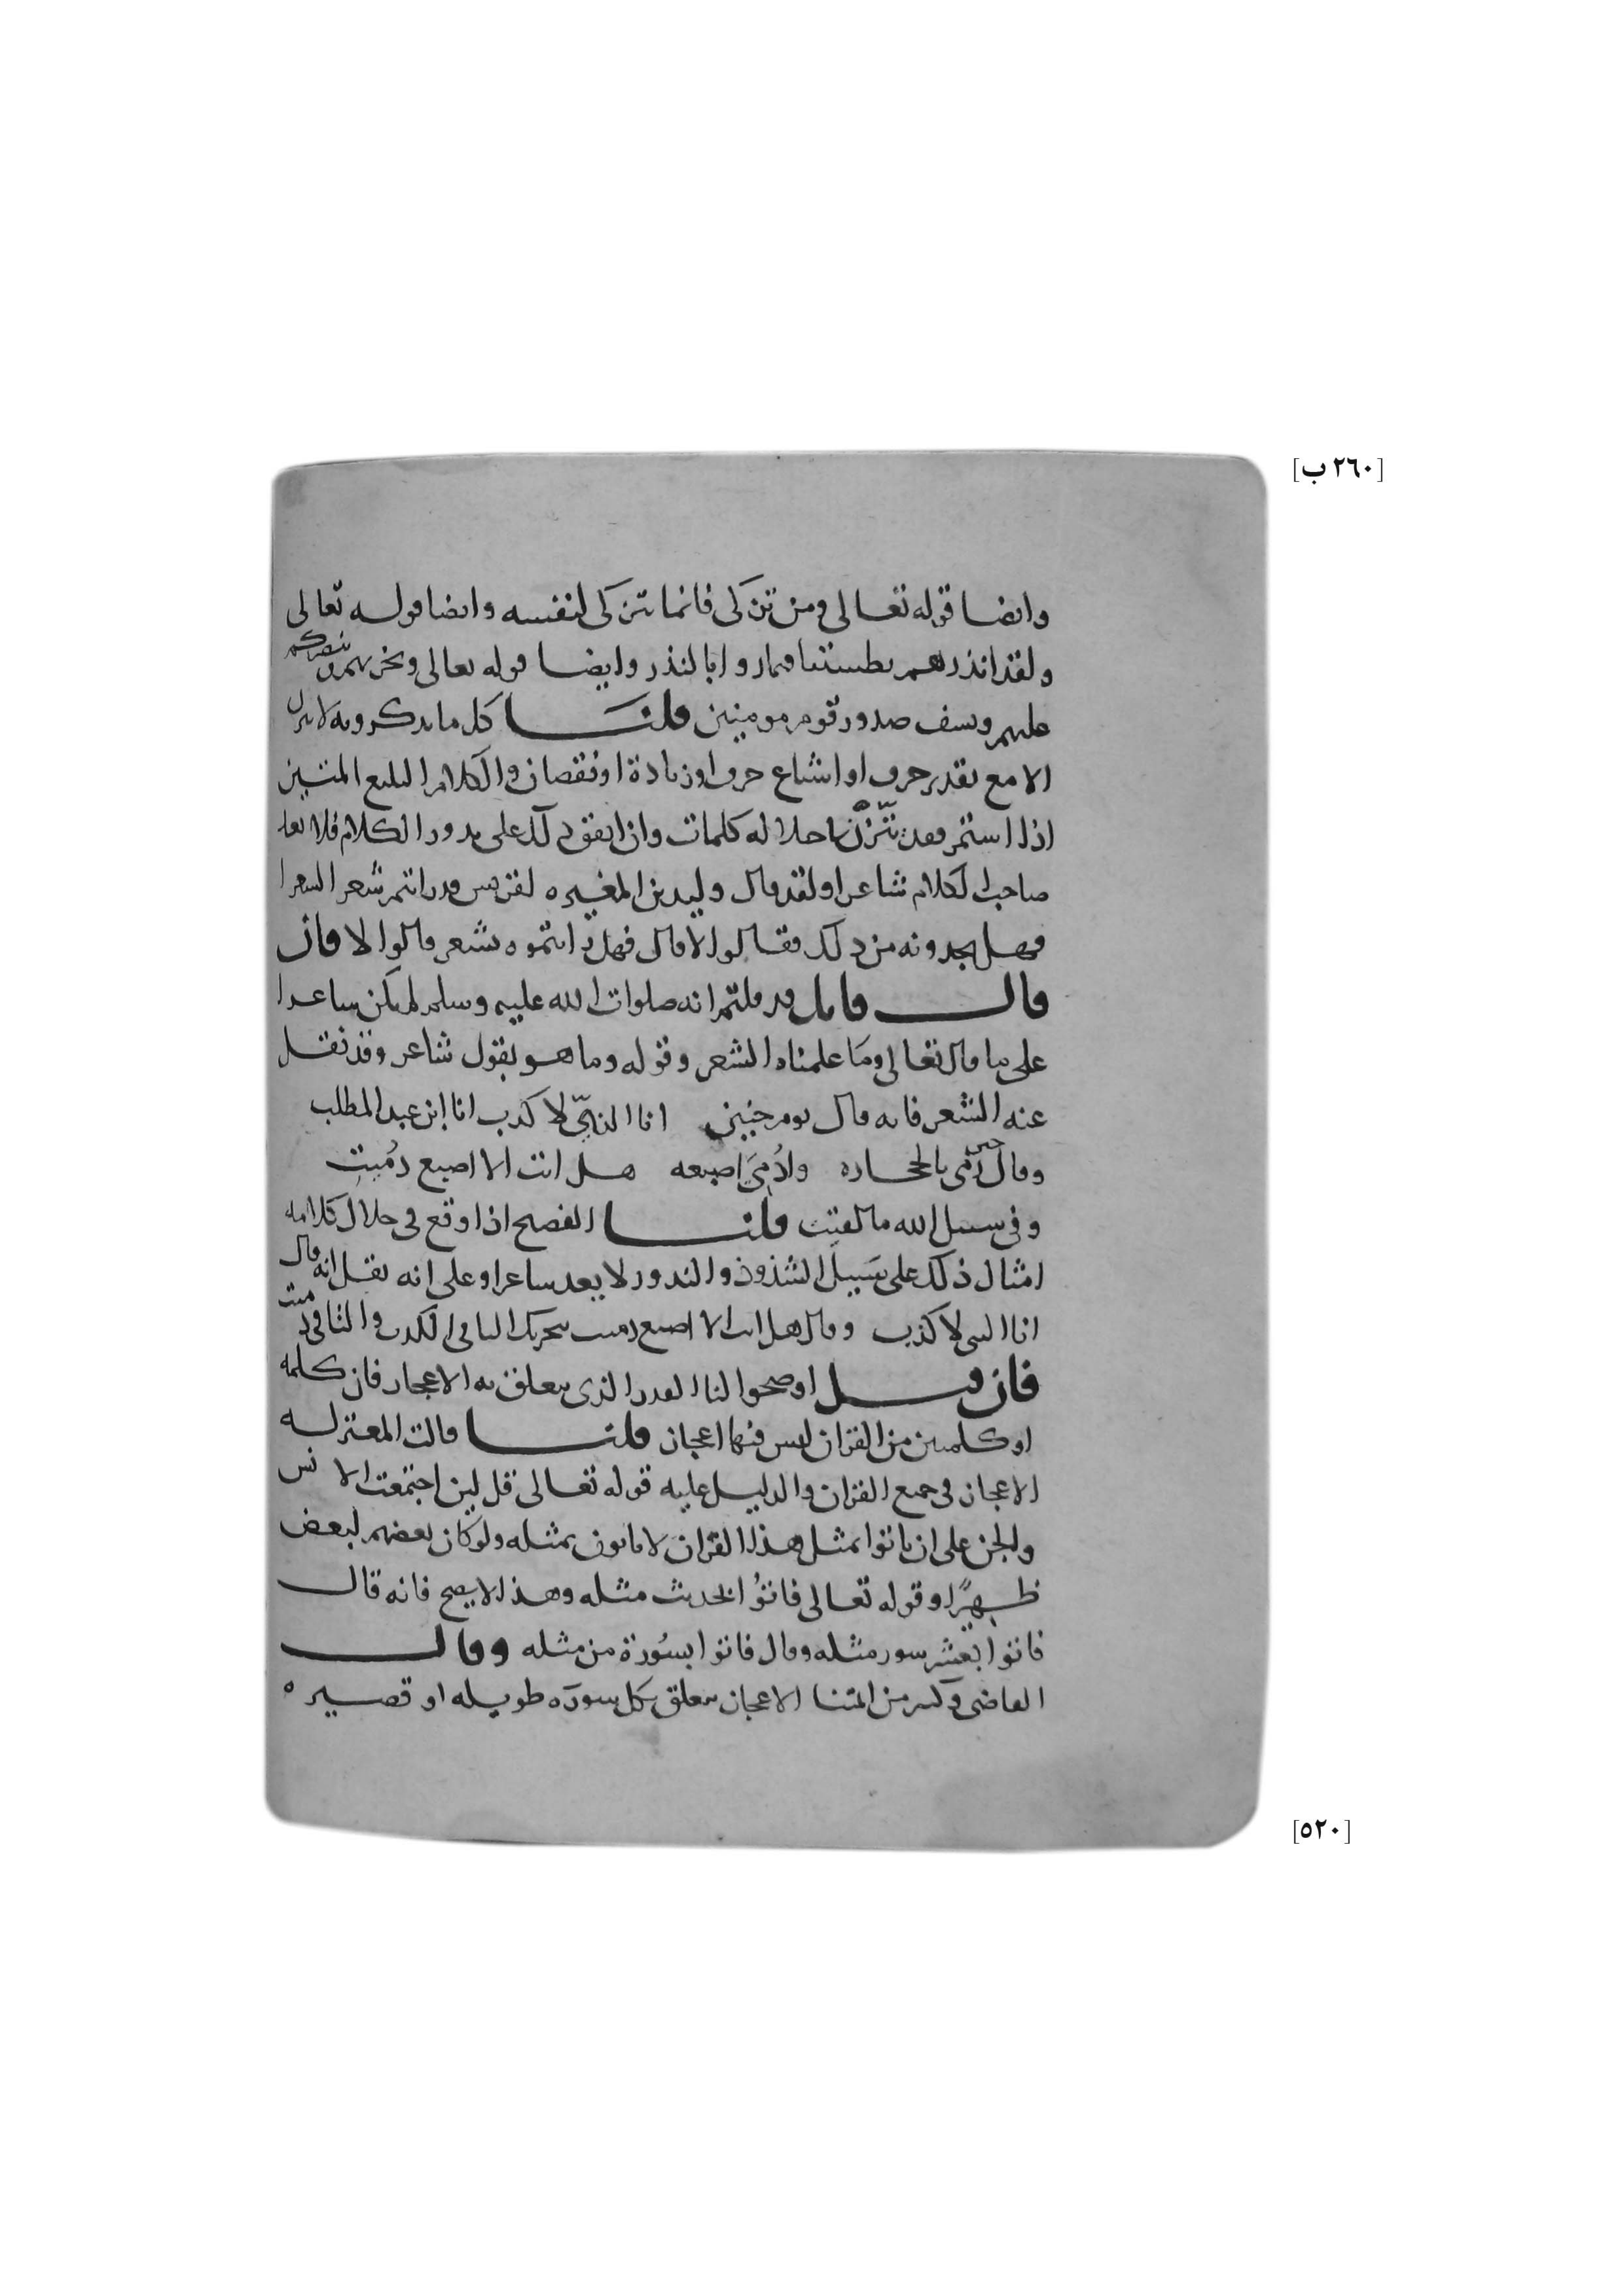 [٢٦٠ ب]
وايضا قوله تعالى ومن تزكى فانما يتزكى لنفسه وايضا قوله تعالى
ولقد انذرهم بطشتنا فتماروا بالنذر وايضا قوله تعالى ويخزهم وينصركم
عليهم ويشف صدور قوم مومنين قلنا كل ما يذكرونه لا يتزن
الا مع تقدير حرف او اشباع حرف او زيادة او نقصان والكلام البليغ المتين
اذا استمر فقد تتزن خلاله كلمات وان اتفق ذلك على ندور الكلام فلا
صاحب الكلام شاعرا ولقد قال وليد بن المغيره لقريش قد رايتم شعر الشعرا
فهل تجدونه من ذلك فقالوا لا قال فهل رايتموه يشعر قالوا لا فان
قال قايل قد قلتم انه صلوات الله عليه وسلم لم يكن شاعرا
على ما قال تعالى وما علمناه الشعر وقوله وما هو بقول شاعر وقد نقل
عنه الشعر فانه قال يوم حنين انا النبي لا كذب انا ابن عبد المطلب
وقال حين رمى بالحجاره وادمى اصبعه هل انت الا اصبع دميت
وفي سبيل الله ما لقيت قلنا الفصيح اذا وقع في خلال كلامه
امثال ذلك على سبيل الشذوذ والندور لا يعد شاعرا وعلى انه نقل انه قال
انا النبي لا كذب وقال هل انت الا اصبع دميت بتحريك البا في الكذب والتا في دميت
فان قيل اوضحوا لنا القدر الذي يتعلق به الاعجاز فان كلمه
او كلمتين من القران ليس فيها اعجاز قلنا قالت المعتزله
الاعجاز في جميع القران والدليل عليه قوله تعالى قل لين اجتمعت الانس
والجن على ان ياتوا بمثل هذا القران لا ياتون بمثله ولو كان بعضهم لبعض
ظهيرا وقوله تعالى فاتوا بحديث مثله وهذا لا يصح فانه قال
فاتوا بعشر سور مثله وقال فاتوا بسورة من مثله وقال
القاضي وكثير من ايمتنا الاعجاز يتعلق بكل سورة طويله او قصيره
[٥٢٠]